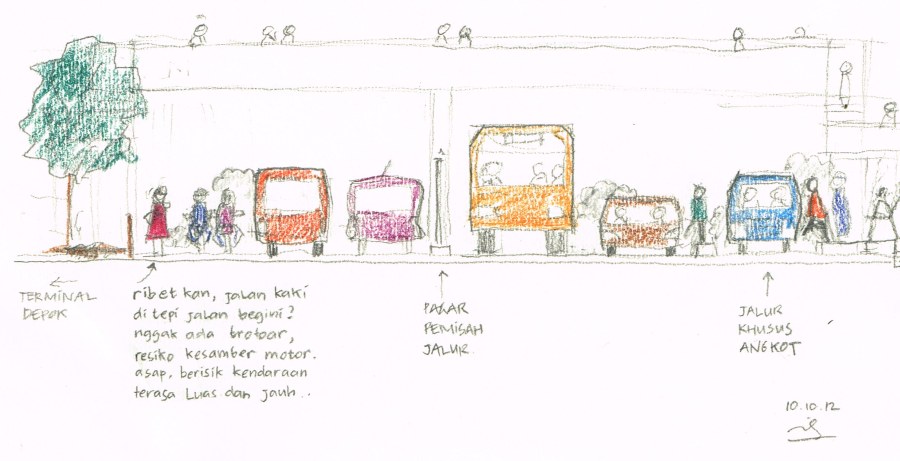 TERMINAL
DEPOK
ribet kan, jalan kaki
di tepi jalan begini?
nggak ada trotoar,
resiko kesamber motor.
asap, berisik kendaraan
terasa Luas dan jauh...
PAGAR
PEMISAH
JALUR
JALUR
KHUSUS
ANGKOT
10.10.12